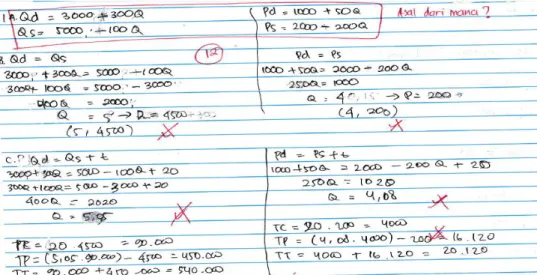 1A. Qd = 3000 + 300Q
Qs = 5000 + 100Q
Pd = 1000 + 50Q
Ps = 2000 - 200Q
Asal dari mana?
12
B. Qd = Qs
3000 + 300Q = 5000 - 100Q
300Q + 100Q = 5000 - 3000
400Q = 2000
Q = 5 → P = 4500
(5, 4500)
Pd = Ps
1000 + 50Q = 2000 - 200Q
250Q = 1000
Q = 4 → P = 200
(4, 200)
C. P. Qd = Qs + t
3000 + 300Q = 5000 - 100Q + 20
300Q + 100Q = 5000 - 3000 + 20
400Q = 2020
Q = 5,05
Pd = Ps + t
1000 + 50Q = 2000 - 200Q + 20
250Q = 1020
Q = 4,08
TC = 20.200 = 4000
TP = (4,08.4000) - 200 = 16.120
TT = 4000 + 16.120 = 20.120
PE = 20.4500 = 90.000
TP = (5,05.90.000) - 4500 = 450.000
TT = 90.000 + 450.000 = 540.000